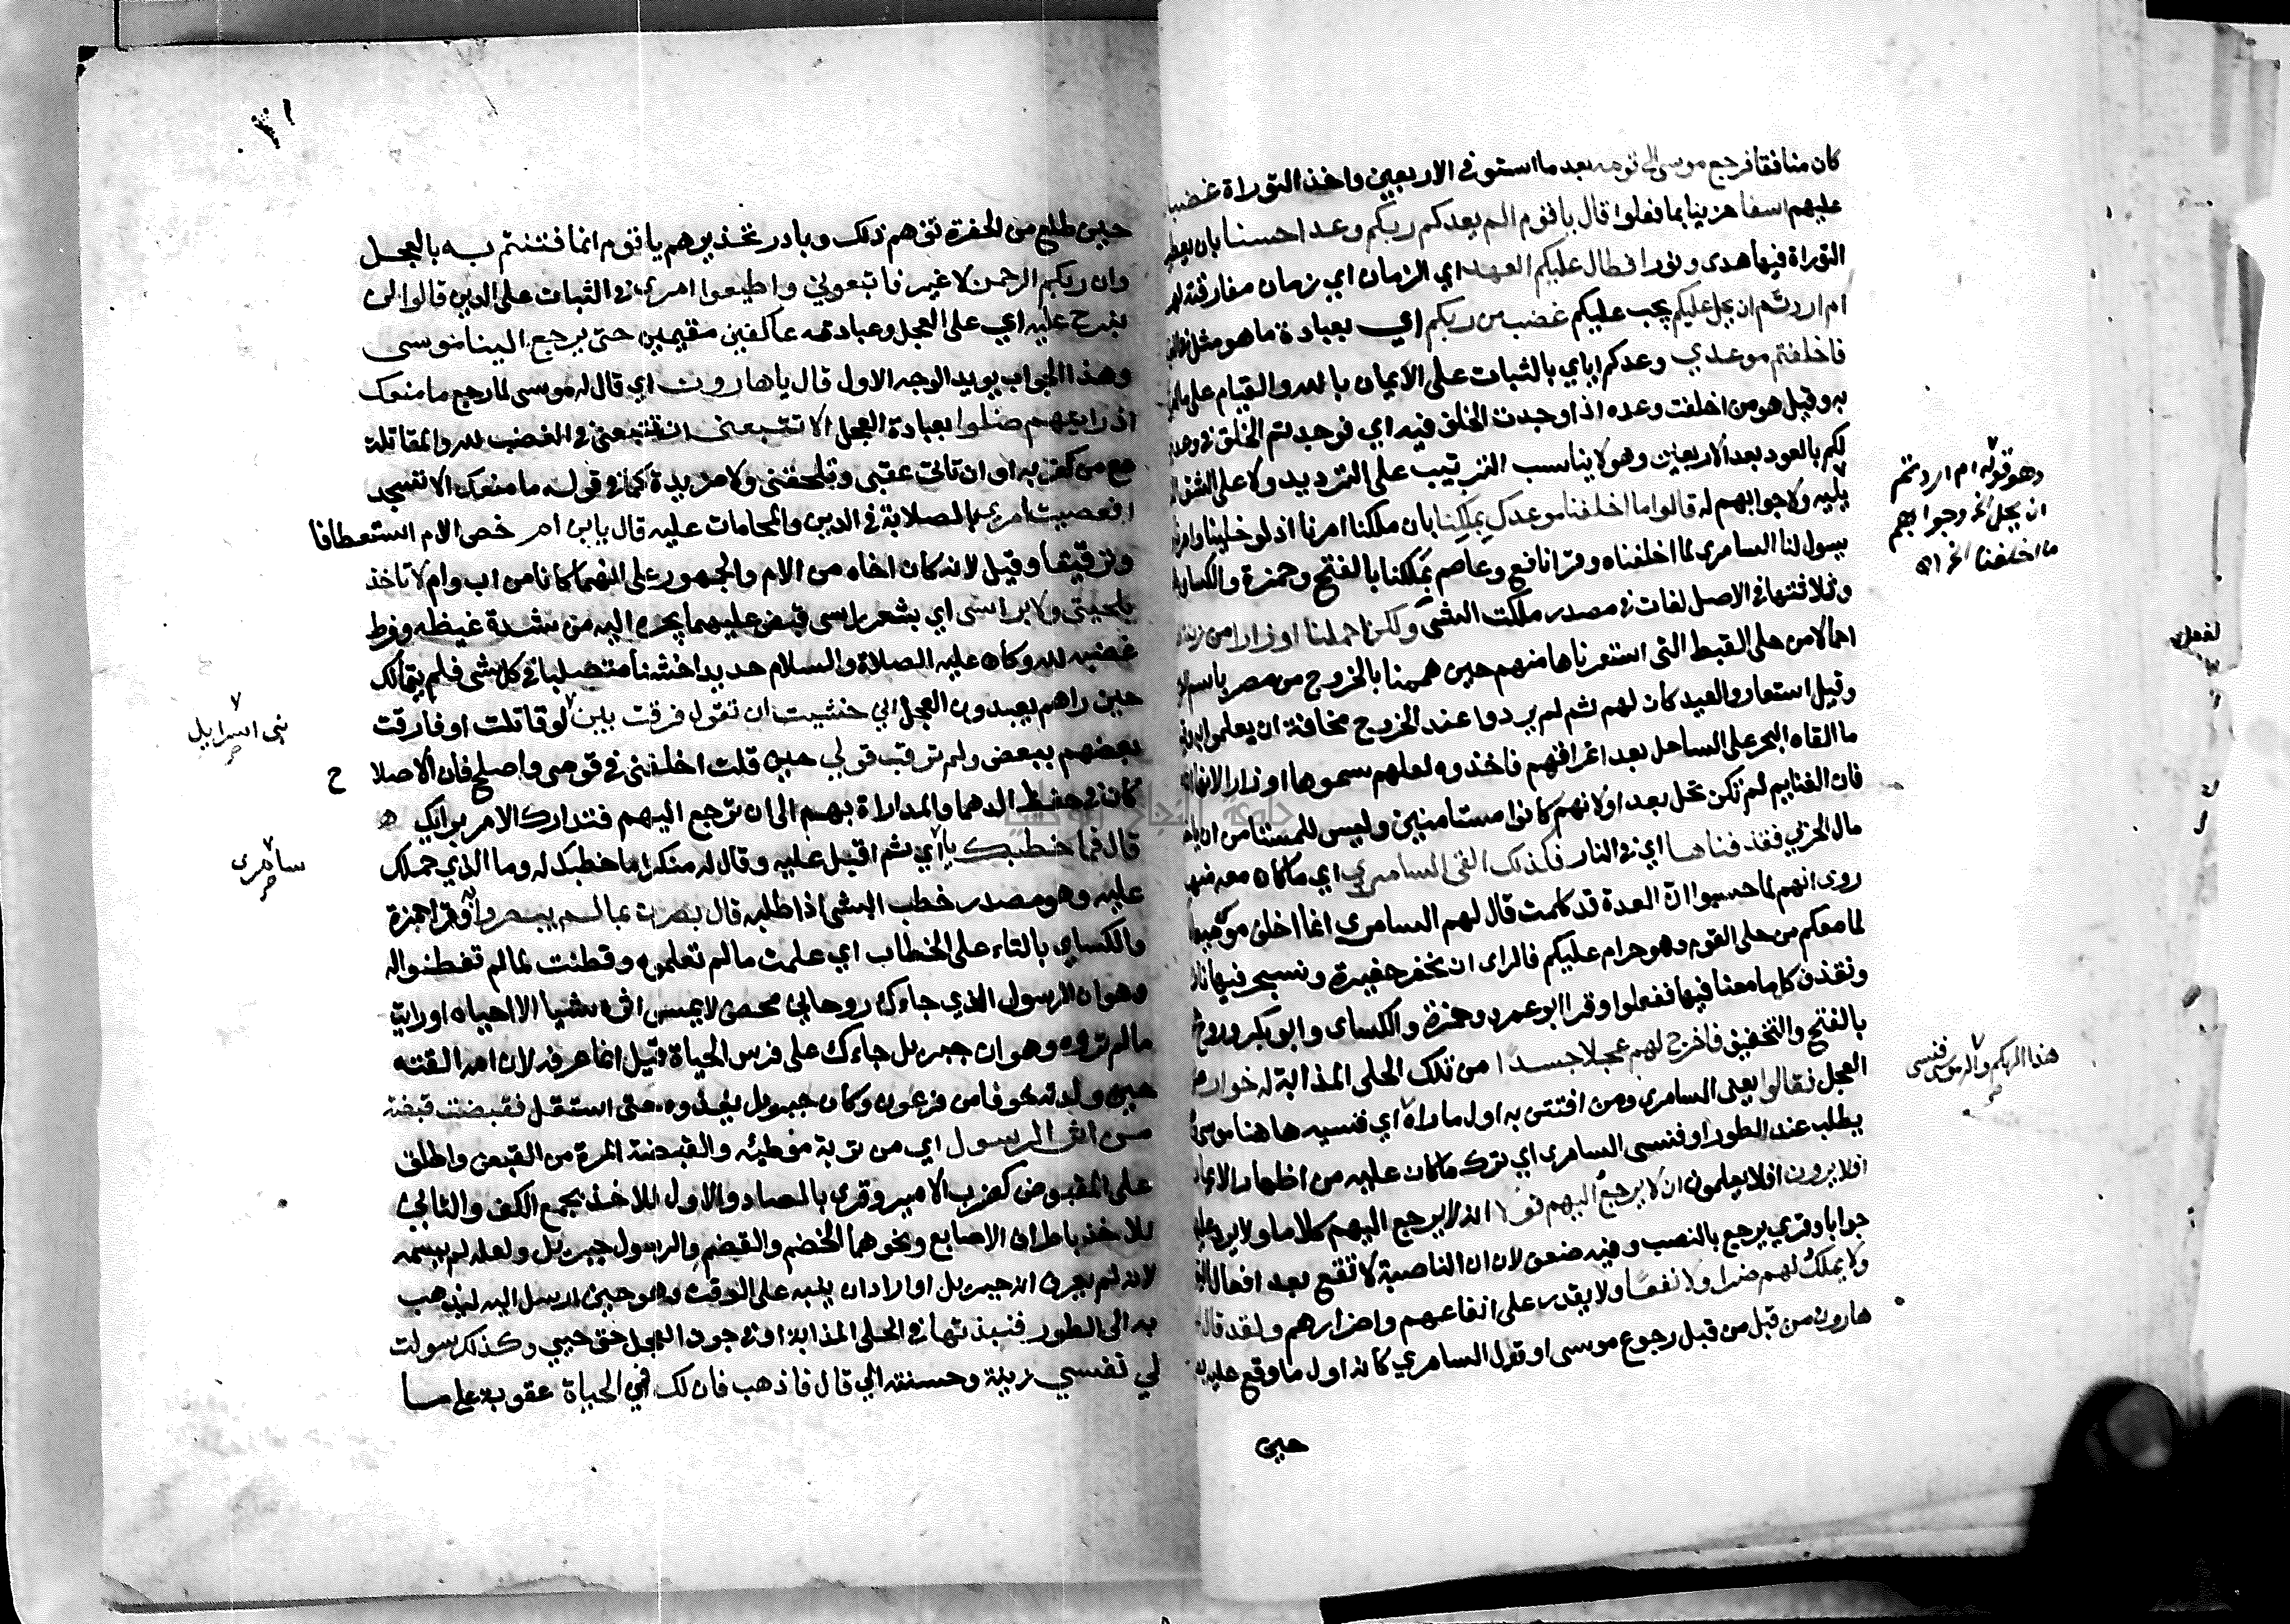 كان منافقا فرجع موسى الى قومه بعد ما استوفى الاربعين واخذ التوراة غضب
عليهم اسفا حزينا بما فعلوا قال ياقوم الم يعدكم ربكم وعدا حسنا بان يعطي
التوراة فيها هدى ونور افطال عليكم العهد اي الزمان اي زمان مفارقته لهم
ام اردتم ان يحل عليكم يجب عليكم غضب من ربكم اي بعبادة ما هو مثل
فاخلفتم موعدي وعدكم اياي بالثبات على الايمان بالله والقيام على ما
به وقيل هو من اخلفت وعده اذا وجدت الخلف فيه اي فوجدتم الخلف في
لكم بالعود بعد الاربعين وهو لا يناسب الترتيب على الترديد ولا على الشق
يليه ولا جوابهم له قالوا ما اخلفنا موعدك بملكنا بان ملكنا امرنا اذ لو خلينا وامرنا
يسول لنا السامري لما اخلفناه وقرا نافع وعاصم بملكنا بالفتح وحمزة والكسائي
وثلاثتها في الاصل لغات في مصدر ملكت الشئ ولكنا حملنا اوزارا من زينة
احمالا من حلي القبط التي استعرناها منهم حين هممنا بالخروج من مصر باسم
وقيل استعاروا لعيد كان لهم ثم لم يردوا عند الخروج مخافة ان يعلموا به
ما القاه البحر على الساحل بعد اغراقهم فاخذوه ولعلهم سموها اوزارا لانها
فان الغنايم لم تكن تحل بعد او لانهم كانوا مستامنين وليس للمستامن ان
مال الحربي فقذفناها اي في النار فكذلك القى السامري اي ما كان معه منها
روى انهم لما حسبوا ان العدة قد كملت قال لهم السامري انما اخلف موسى
لما معكم من حلي القوم وهو حرام عليكم فالراى ان نحفر حفيرة ونسجر فيها نارا
ونقذف كل ما معنا فيها ففعلوا وقرا ابو عمرو وحمزة والكسائي وابو بكر وروح
بالفتح والتخفيف فاخرج لهم عجلا جسدا من تلك الحلي المذابة له خوار
العجل فقالوا يعني السامري ومن افتتن به اول ما راه اي فنسيه هاهنا موسى
يطلب عند الطور او فنسي السامري اي ترك ما كان عليه من اظهار الايمان
افلا يرون افلا يعلمون ان لا يرجع اليهم قولا انه لا يرجع اليهم كلاما ولا يرد
جوابا وقري يرجع بالنصب وفيه ضعف لان ان الناصبة لا تقع بعد افعال
ولا يملك لهم ضرا ولا نفعا ولا يقدر على انفاعهم واضرارهم ولقد قال
هارون من قبل من قبل رجوع موسى او قول السامري كانه اول ما وقع عليه
حين
وهو قوله ام اردتم
ان يحل الخ وجوابهم
ما اخلفنا الخ
هذا الهكم واله موسى فنسى
حين طلع من الحفرة توهم ذلك وبادر تحذيرهم يا قوم انما فتنتم به بالعجل
وان ربكم الرحمن لا غير فاتبعوني واطيعوا امري في الثبات على الدين قالوا لن
نبرح عليه اي على العجل وعبادته عاكفين مقيمين حتى يرجع الينا موسى
وهذا الجواب يويد الوجه الاول قال يا هارون اي قال له موسى لما رجع ما منعك
اذ رايتهم ضلوا بعبادة العجل الا تتبعني ان تتبعني في الغضب لله والمقاتلة
مع من كفر به او ان تاتي عقبي وتلحقني ولا مزيدة كما في قوله ما منعك الا تسجد
افعصيت امري بالصلابة في الدين والمحامات عليه قال يا ابن ام خص الام استعطافا
وترقيقا وقيل لانه كان اخاه من الام والجمهور على انهما كانا من اب وام لا تاخذ
بلحيتي ولا براسي اي بشعر راسي قبض عليهما يجره اليه من شدة غيظه وفرط
غضبه لله وكان عليه الصلاة والسلام حديدا خشنا متصلبا في كل شي فلم يتمالك
حين راهم يعبدون العجل اني خشيت ان تقول فرقت بين لو قاتلت او فارقت
بعضهم ببعض ولم ترقب قولي حين قلت اخلفني في قومي واصلح فان الاصلا ح
كان في حفظ الدهما والمداراة بهم الى ان ترجع اليهم فتدارك الامر برايك
قال فما خطبك يا اي ثم اقبل عليه وقال له منكرا ما خطبك له وما الذي حملك
عليه وهو مصدر خطب الشئ اذا طلبه قال بصرت بما لم يبصروا به وقرا حمزة
والكسائي بالتاء على الخطاب اي علمت ما لم تعلموه وفطنت لما لم تفطنوا له
وهو ان الرسول الذي جاءك روحاني محض لا يمس اثره شيا الا احياه او رايت
ما لم تروه وهو ان جبريل جاءك على فرس الحياة قيل انما عرفه لان امه القته
حين ولدته خوفا من فرعون وكان جبريل يغذوه حتى استقل فقبضت قبضة
من اثر الرسول اي من تربة موطيه والقبضة المرة من القبض واطلق
على المقبوض كضرب الامير وقري بالصاد والاول للاخذ بجميع الكف والثاني
للاخذ باطراف الاصابع ونحوهما الخضم والقضم والرسول جبريل ولعله لم يسمه
لانه لم يعرف انه جبريل او اراد ان ينبه على الوقت وهو حين ارسل اليه ليذهب
به الى الطور فنبذتها في الحلي المذابة او في جوف العجل حتى حيي وكذلك سولت
لي نفسي زينة وحسنته الي قال فاذهب فان لك في الحياة عقوبة على ما
بني اسرايل
سامرى